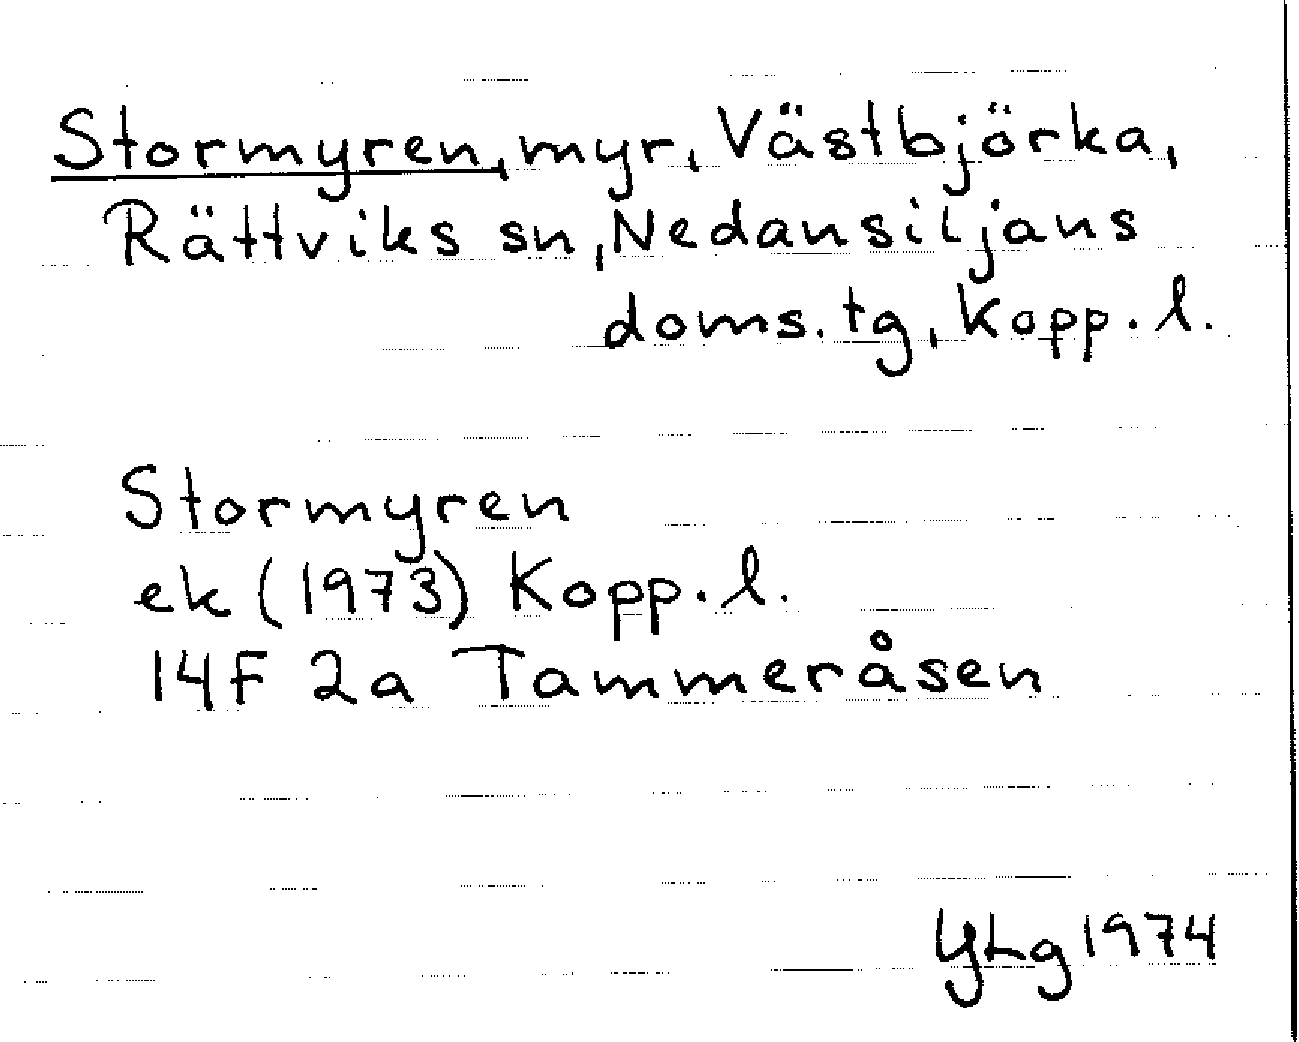 Stormyren, myr, Västbjörka,
Rättviks sn, Nedansiljans
doms. tg, Kopp. l.
Stormyren
ek (1973) Kopp. l.
14F 2a Tammeråsen
YLg 1974